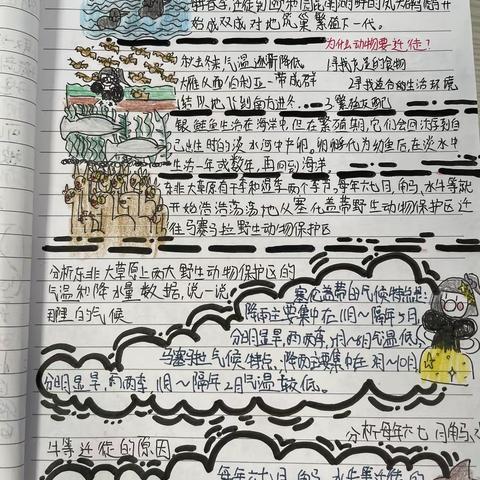 开始成双成对地筑巢繁殖下一代。
为什么动物要迁徙?
秋冬来气温逐渐降低 1寻找充足的食物
大雁从西伯利亚一带成群 2寻找适合的生活环境
结队地飞到南方过冬 3繁殖
银鲑鱼生活在海洋中,但在繁殖期,它们会回游到自
己出生时的淡水河中产卵。卵孵代为幼鱼后,在淡水中
生活一年或数年,再回到海洋
东非大草原有干季和湿季两个季节。每年六七月,角马、水牛等就
开始浩浩荡荡地从塞伦盖蒂野生动物保护区迁
往马塞马拉野生动物保护区
分析东非大草原上两大野生动物保护区的
气温和降水量数据,说一说
那里的气候
塞伦盖蒂的气候特点是:
降雨主要集中在11月~隔年5月,
分明显旱,雨两季,月~8月气温低。
马塞马拉气候特点,降雨主要集中在 月~10月,
分明显旱,雨两季,11月~隔年2月气温较低。
分析每年六七月角马、水
牛等迁徙的原因
每年六七月,角马、水牛等迁徙的